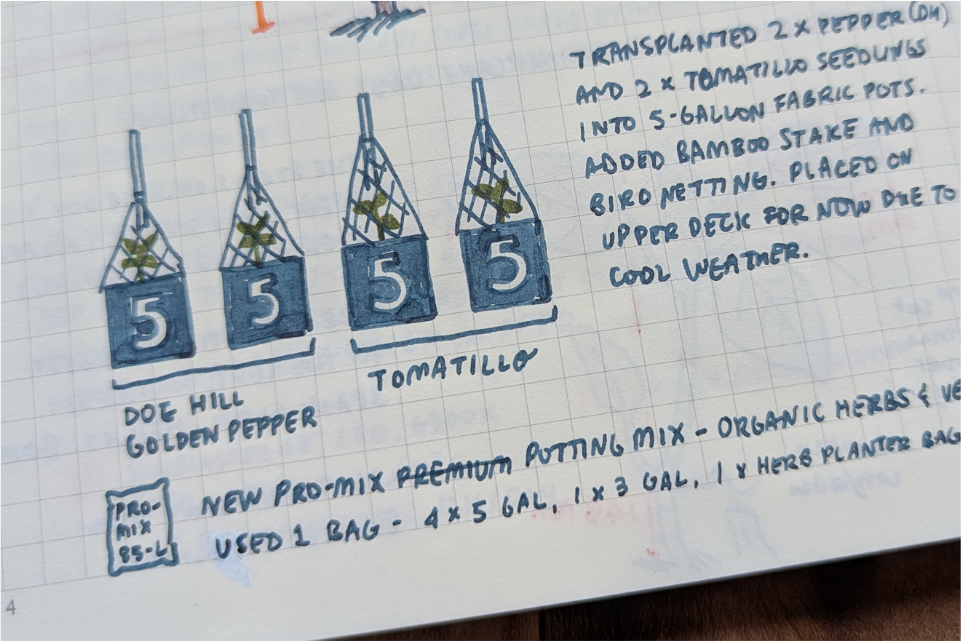 TRANSPLANTED 2 X PEPPER (DH)
AND 2 X TOMATILLO SEEDLINGS
INTO 5-GALLON FABRIC POTS.
ADDED BAMBOO STAKE AND
BIRD NETTING. PLACED ON
UPPER DECK FOR NOW DUE TO
COOL WEATHER.
5 5 5 5
DOE HILL
GOLDEN PEPPER
TOMATILLO
PRO-
MIX
85-L
NEW PRO-MIX PREMIUM POTTING MIX - ORGANIC HERBS & VE
USED 1 BAG - 4 X 5 GAL, 1 X 3 GAL, 1 X HERB PLANTER BAG
4